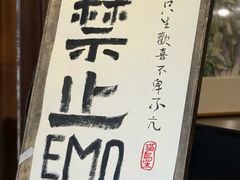 只生歡喜不卑不亢
禁止
EMO